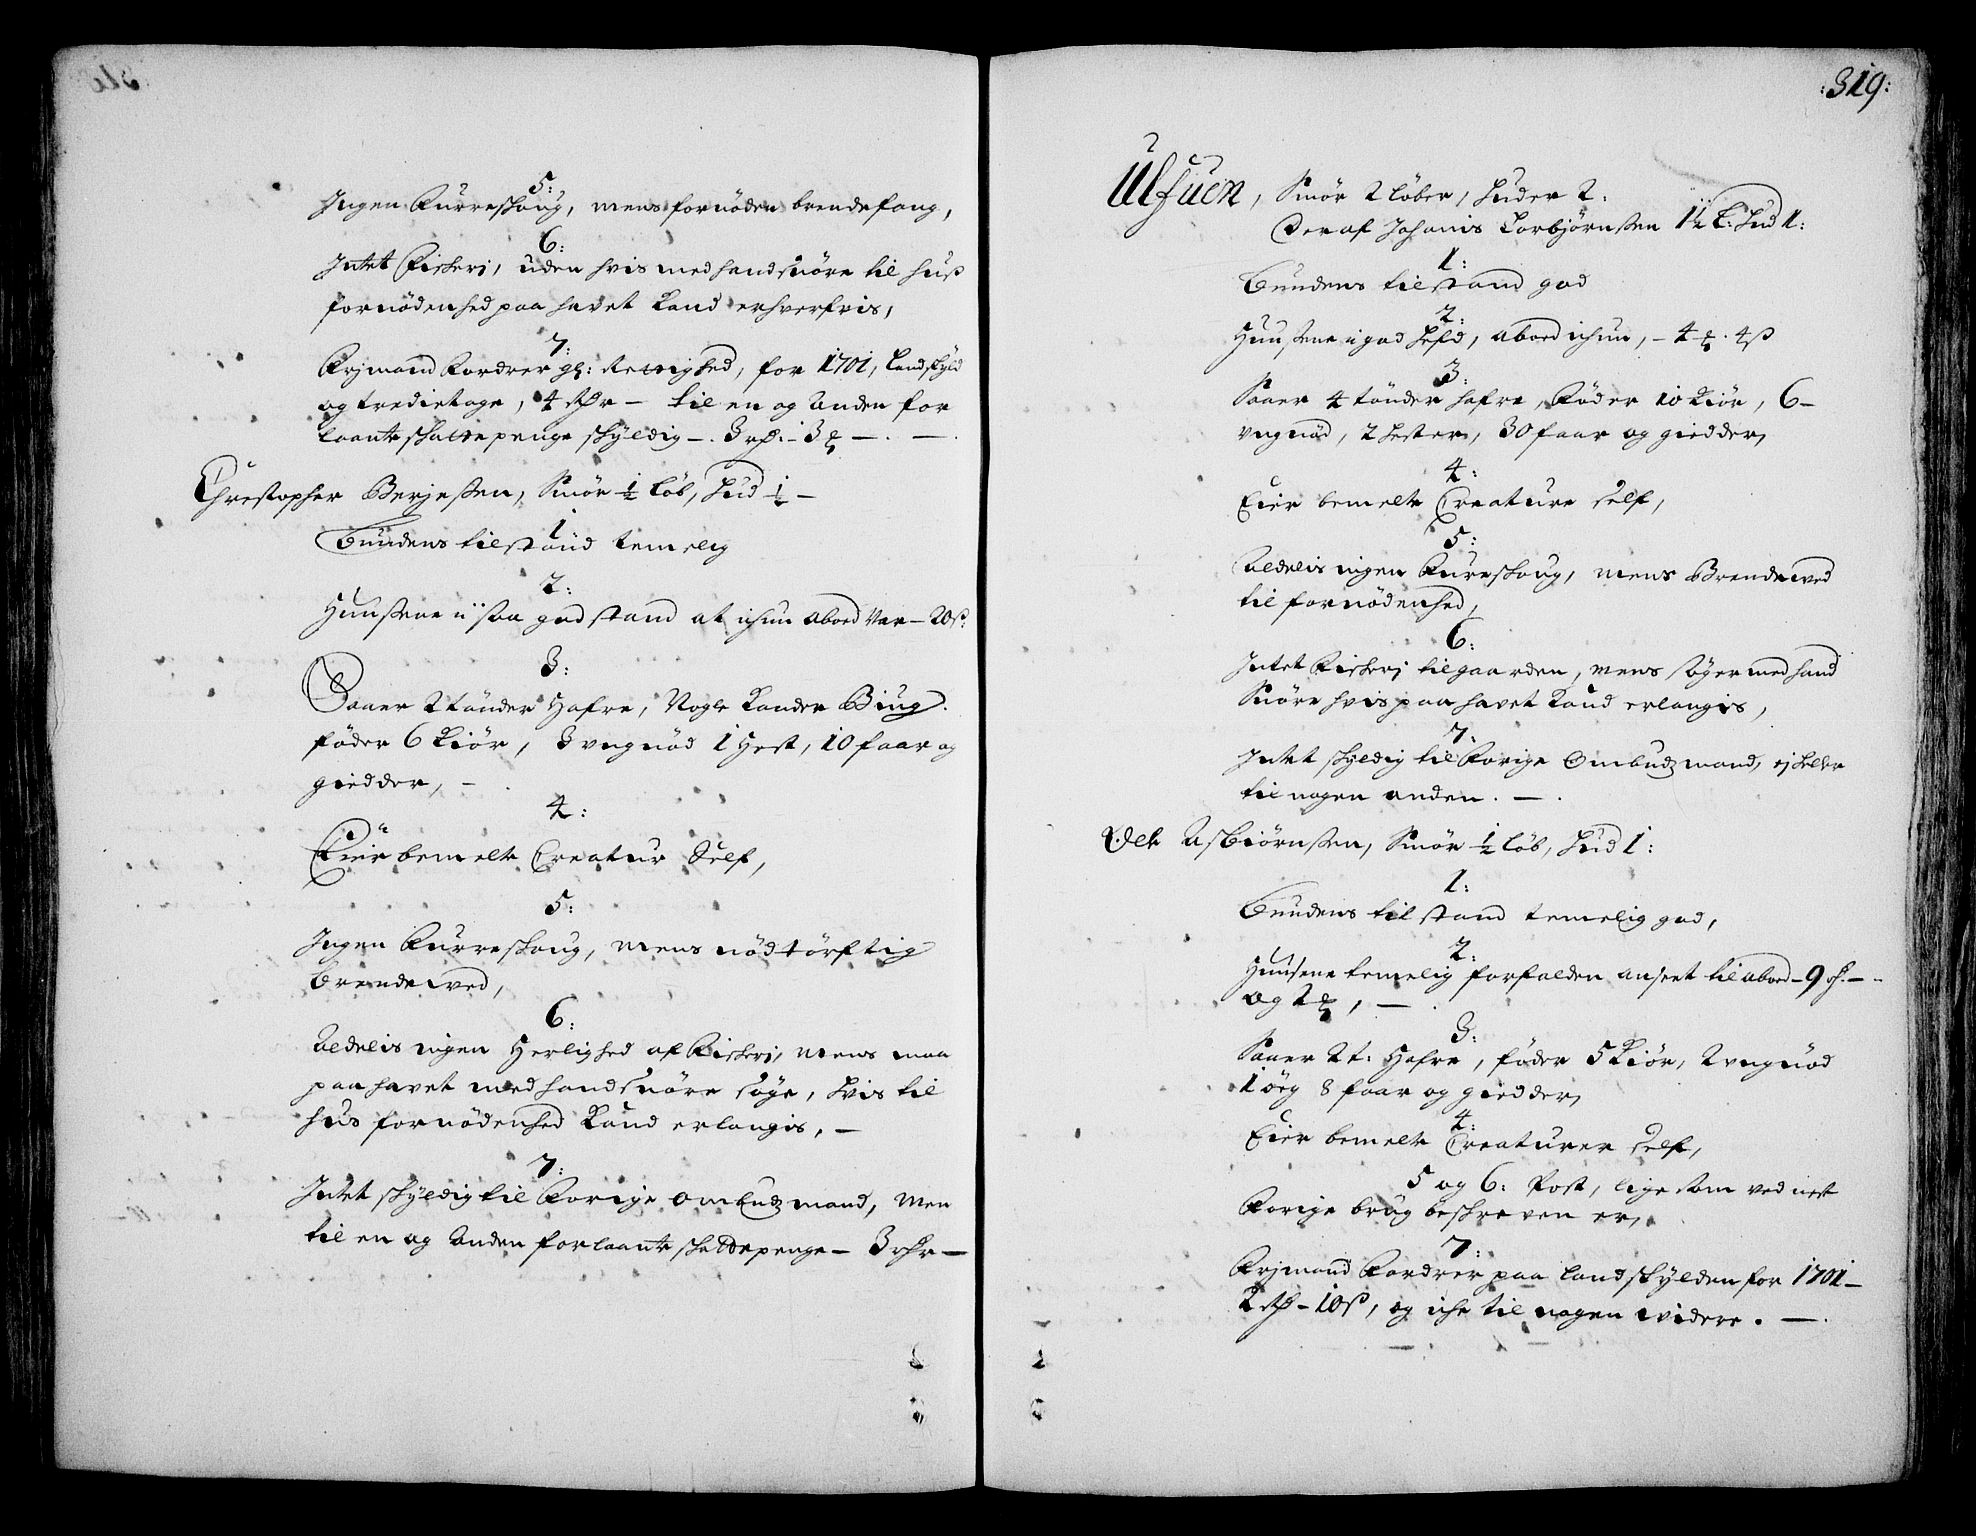 5:
Ingen Furreskoug, mens fornöden brendefang,
6:
Intet Fiskeri, uden hvis med handsnöre til huus
fornödenhed paa havet kand erhverfvis,
7:
Krigmand Fordrer gl: Rettighed, for 1701, Landskyld
og tredietage, 4 rdr – til en og Anden for
laante skattepenge skyldig –. 3 rd. – 3 –. –.
Christopher Berjessen, Smör ½ Löb, Hud ½ –
1
Bundens tilstand temelig
2:
Huussene i saa god stand at ichun aboed var – 20 s:
3:
Saaer 2 tönder Hafre, Nogle Kander Biug.
föder 6 Kiör, 3 ungnöd 1 Hest, 10 faar og
giedder, –
4:
Eier bemelte Creatur Self,
5:
Ingen Furreskoug, mens nödtörftig
brendeved,
6:
Aldelis ingen Herlighed af Fiskeri, mens maa
paa havet med handsnöre söge, hvis til
huus fornödenhed kand erlangis, –
7:
Intet skyldig til Forige Ombudzmand, Men
til en og Anden for laante skattepenge – 3 rdr –
:319:
Ulfuen, Smör 2 löber, Huder 2:
Deraf Johanis Torbjörnssen 1½ L: Hud 1:
1:
Bundens tilstand god
2:
Huussene i god hefd, aboed ichun, – 4 . 4 s
3:
Saaer 4 tönder hafre, Föder 10 Kiör, 6 –
ungnöd, 2 hester, 30 faar og giedder,
4:
Eier bemelte Creature self,
5:
Aldelis ingen Furreskoug, mens Brendeved
til fornödenhed,
6:
Intet Fiskeri til gaarden, mens söger med hand
Snöre hvis paa havet kand erlangis,
7:
Intet skyldig til Forige Ombudzmand, ej heller
til nogen anden. –.
Ole Asbiörnssen, Smör ½ Löb, Hud 1:
1:
Bundens tilstand temelig god,
2:
Huusene temelig forfalden anseet til aboed – 9 rd. –
og 2 , –
3:
Saaer 2 t: Hafre, föder 5 Kiör, 2 ungnöd
1 öeg 8 faar og giedder,
4:
Eier bemelte Creaturer self,
5 og 6: Post, lige som ved nest
Forige brug beskreven er,
7:
Krigmand Fordrer paa Landskylden for 1701 –
2 rd – 10 s, og iche til nogen videre. –.